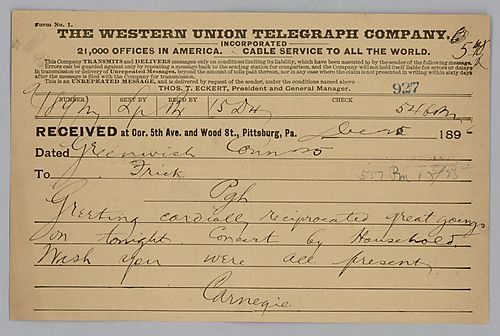 Form No. 1.
THE WESTERN UNION TELEGRAPH COMPANY.
INCORPORATED
21,000 OFFICES IN AMERICA. CABLE SERVICE TO ALL THE WORLD.
This Company TRANSMITS and DELIVERS messages only on conditions limiting its liability, which have been assented to by the sender of the following message.
Errors can be guarded against only by repeating a message back to the sending station for comparison, and the Company will not hold itself liable for errors or delays
in transmission or delivery of Unrepeated Messages, beyond the amount of tolls paid thereon, nor in any case where the claim is not presented in writing within sixty days
after the message is filed with the Company for transmission.
This is an UNREPEATED MESSAGE, and is delivered by request of the sender, under the conditions named above.
THOS. T. ECKERT, President and General Manager.
927
NUMBER SENT BY REC'D BY CHECK
RECEIVED at Cor. 5th Ave. and Wood St., Pittsburg, Pa. 1896
Dated Greenwich Conn 25
To Frick
Pgh
Greeting cordially reciprocated great goings
on tonight. Concert by Household.
Wish you were all present
Carnegie